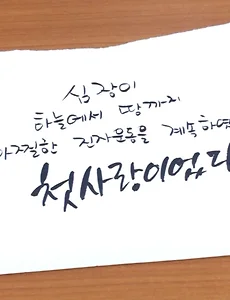 심장이
하늘에서 땅까지
아찔한 진자운동을 계속하였
첫사랑이었다